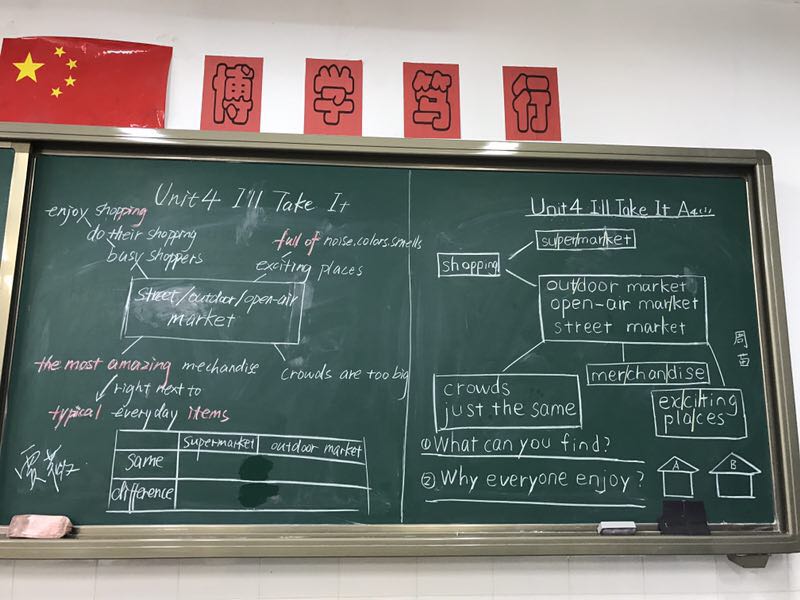 博 学 笃 行
Unit 4 I'll Take It
enjoy shopping
do their shopping
busy shoppers
full of noise.colors.smells
exciting places
street/outdoor/open-air
market
the most amazing merchandise
crowds are too big
right next to
typical everyday items
supermarket outdoor market
same
difference
Unit 4 I'll Take It A4(1)
supermarket
shopping
outdoor market
open-air market
street market
周苗
merchandise
crowds
just the same
exciting
places
① What can you find?
② Why everyone enjoy?
A B